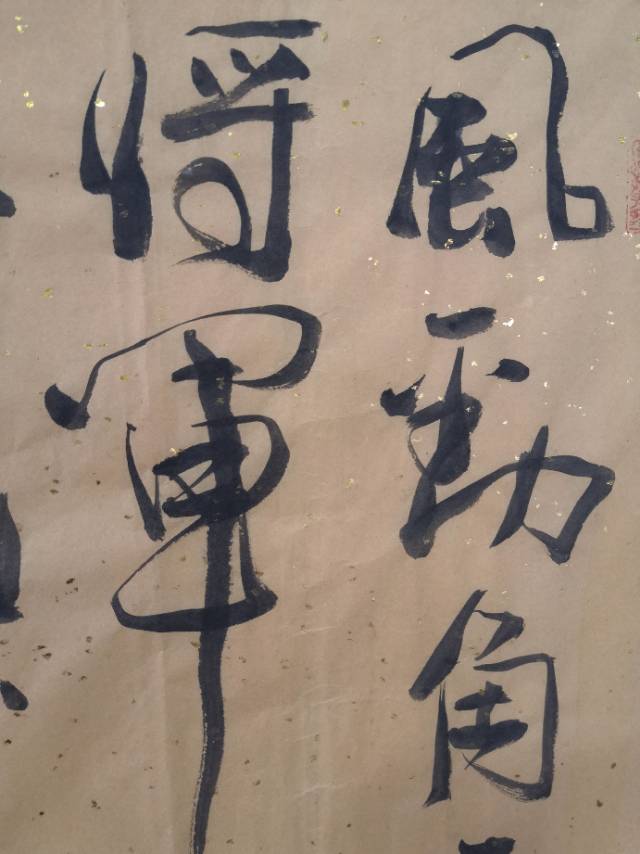 風勁角
將軍